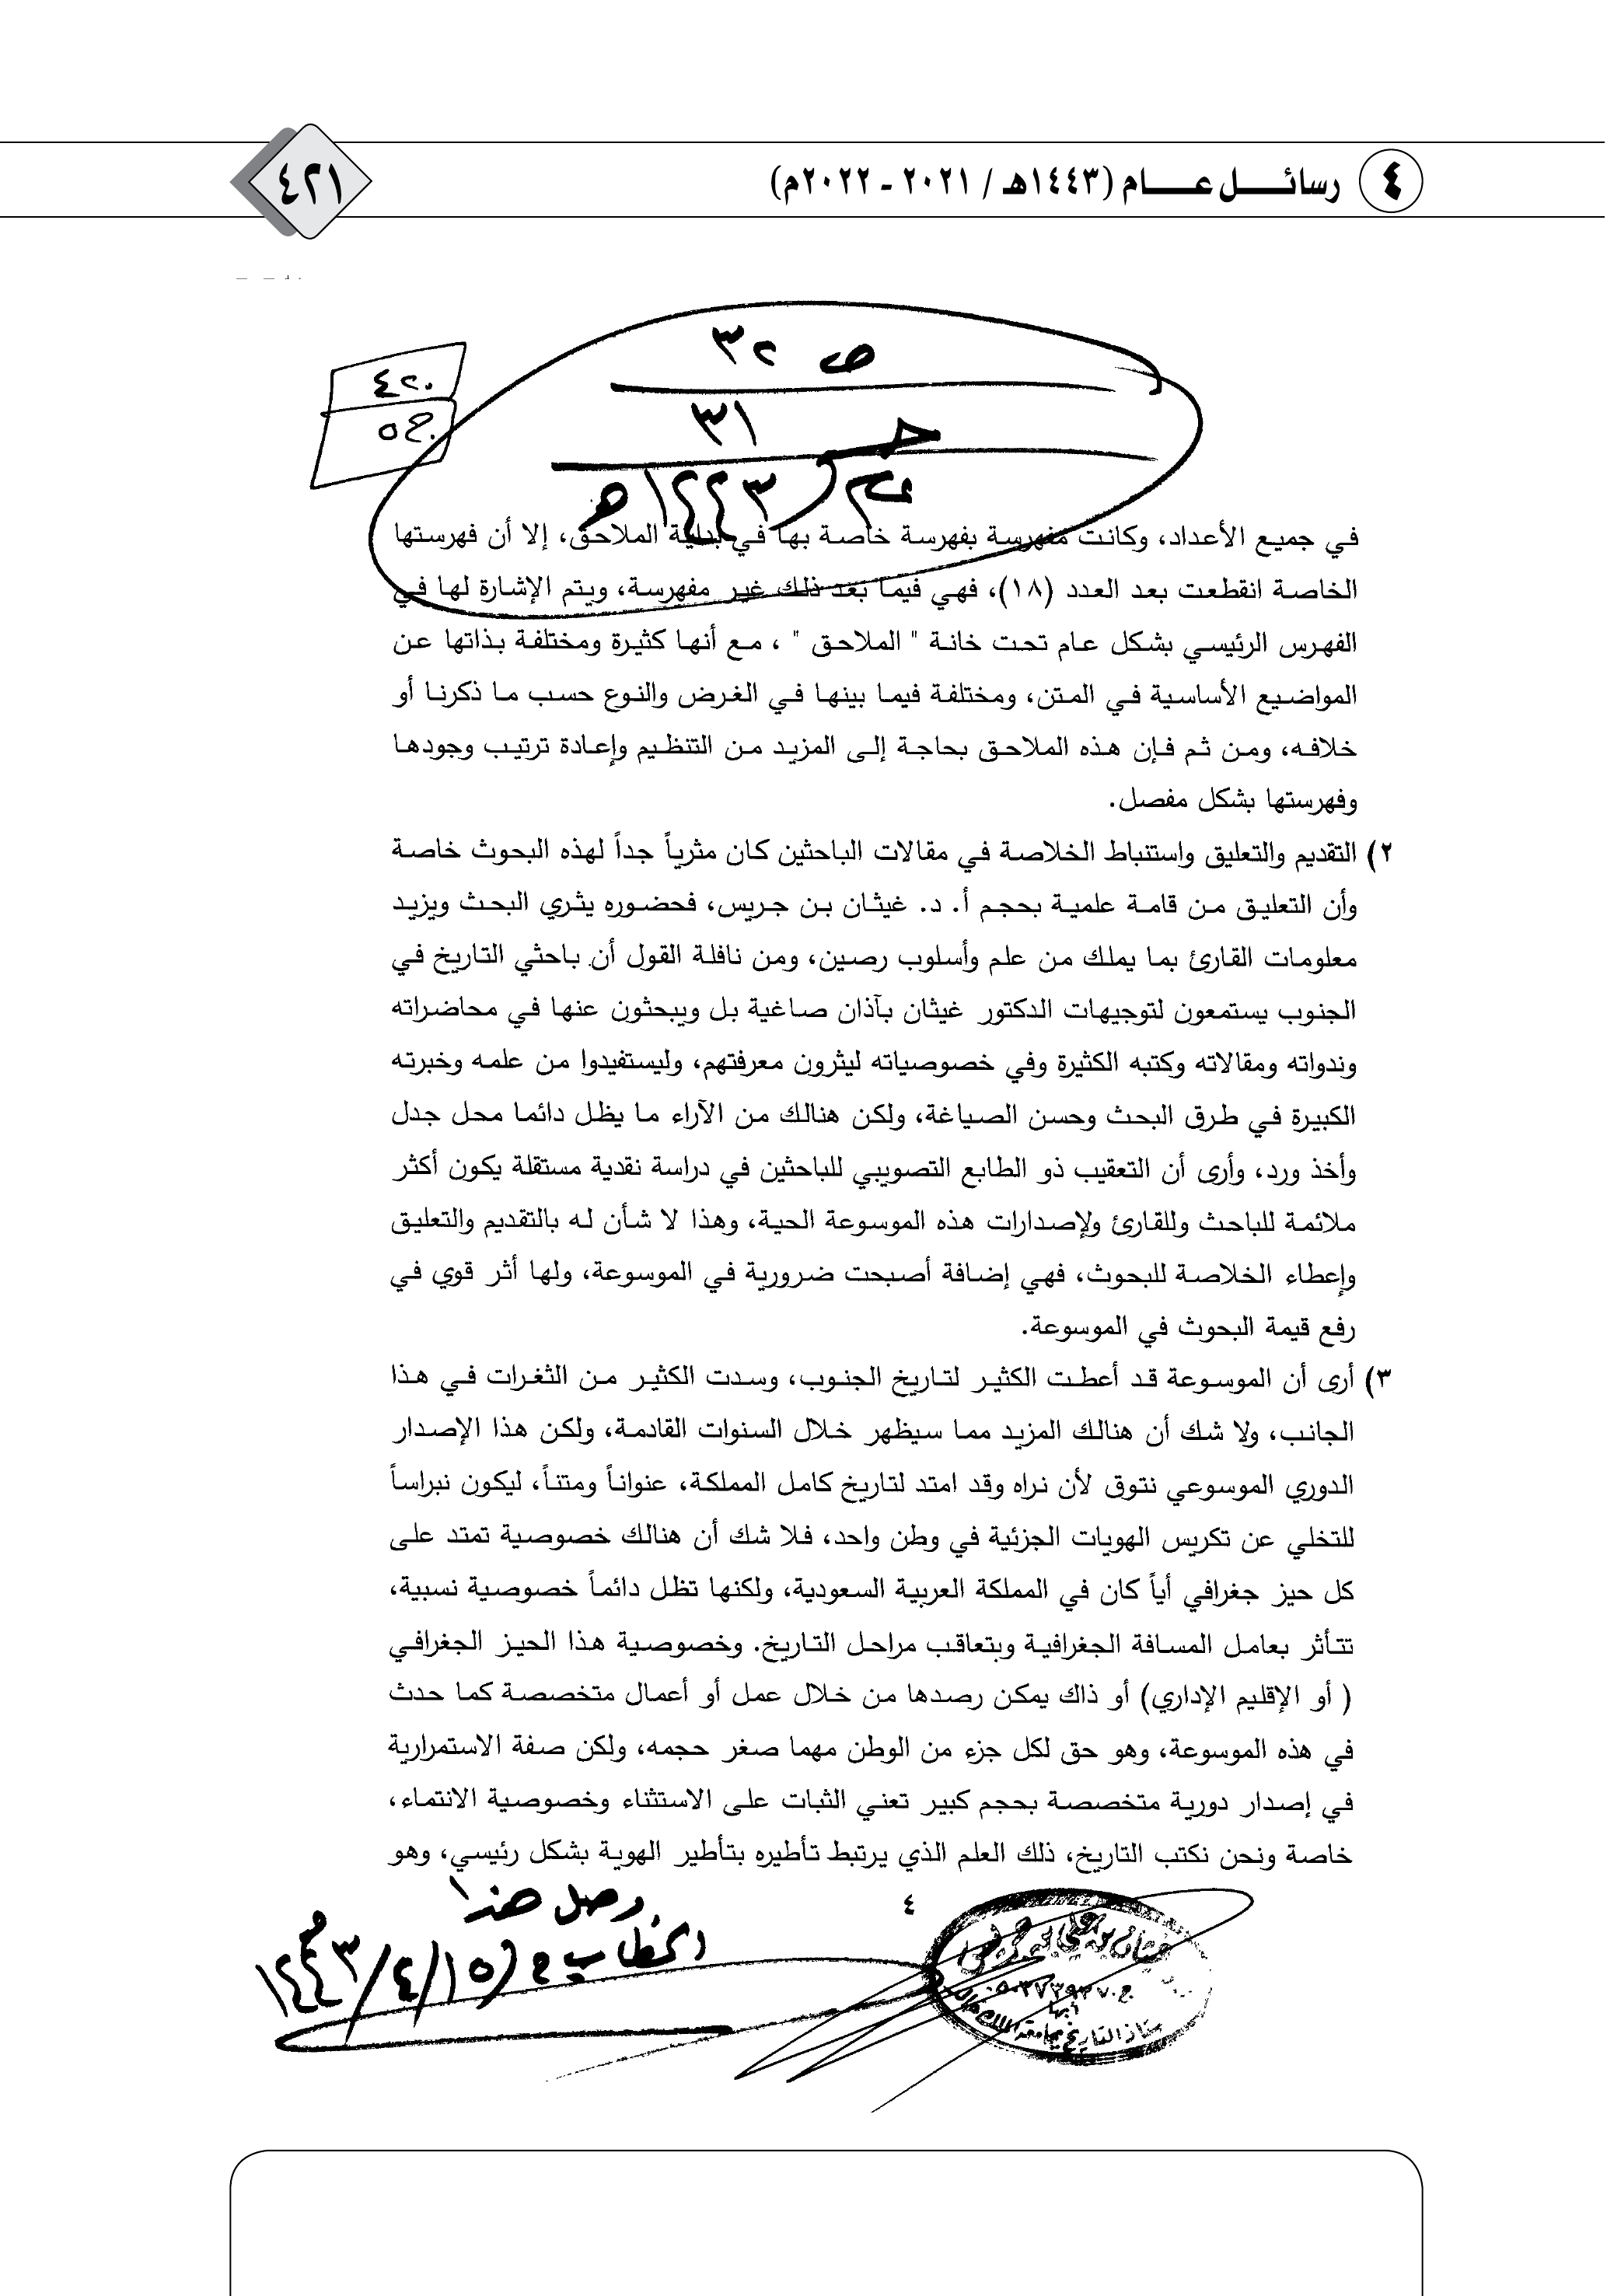 ٤ رسائل عام (١٤٤٣هـ / ٢٠٢١ - ٢٠٢٢م)
٤٢١
ص ٣٢
٣١
١٤٤٣هـ
٤٢٠
ج٥
في جميع الأعداد، وكانت مفهرسة بفهرسة خاصة بها في بداية الملاحق، إلا أن فهرستها
الخاصة انقطعت بعد العدد (١٨)، فهي فيما بعد ذلك غير مفهرسة، ويتم الإشارة لها في
الفهرس الرئيسي بشكل عام تحت خانة " الملاحق " ، مع أنها كثيرة ومختلفة بذاتها عن
المواضيع الأساسية في المتن، ومختلفة فيما بينها في الغرض والنوع حسب ما ذكرنا أو
خلافه، ومن ثم فإن هذه الملاحق بحاجة إلى المزيد من التنظيم وإعادة ترتيب وجودها
وفهرستها بشكل مفصل.
٢) التقديم والتعليق واستنباط الخلاصة في مقالات الباحثين كان مثرياً جداً لهذه البحوث خاصة
وأن التعليق من قامة علمية بحجم أ. د. غيثان بن جريس، فحضوره يثري البحث ويزيد
معلومات القارئ بما يملك من علم وأسلوب رصين، ومن نافلة القول أن باحثي التاريخ في
الجنوب يستمعون لتوجيهات الدكتور غيثان بآذان صاغية بل ويبحثون عنها في محاضراته
وندواته ومقالاته وكتبه الكثيرة وفي خصوصياته ليثرون معرفتهم، وليستفيدوا من علمه وخبرته
الكبيرة في طرق البحث وحسن الصياغة، ولكن هنالك من الآراء ما يظل دائما محل جدل
وأخذ ورد، وأرى أن التعقيب ذو الطابع التصويبي للباحثين في دراسة نقدية مستقلة يكون أكثر
ملائمة للباحث وللقارئ ولإصدارات هذه الموسوعة الحية، وهذا لا شأن له بالتقديم والتعليق
وإعطاء الخلاصة للبحوث، فهي إضافة أصبحت ضرورية في الموسوعة، ولها أثر قوي في
رفع قيمة البحوث في الموسوعة.
٣) أرى أن الموسوعة قد أعطت الكثير لتاريخ الجنوب، وسدت الكثير من الثغرات في هذا
الجانب، ولا شك أن هنالك المزيد مما سيظهر خلال السنوات القادمة، ولكن هذا الإصدار
الدوري الموسوعي نتوق لأن نراه وقد امتد لتاريخ كامل المملكة، عنواناً ومتناً، ليكون نبراساً
للتخلي عن تكريس الهويات الجزئية في وطن واحد، فلا شك أن هنالك خصوصية تمتد على
كل حيز جغرافي أياً كان في المملكة العربية السعودية، ولكنها تظل دائماً خصوصية نسبية،
تتأثر بعامل المسافة الجغرافية وبتعاقب مراحل التاريخ. وخصوصية هذا الحيز الجغرافي
( أو الإقليم الإداري) أو ذاك يمكن رصدها من خلال عمل أو أعمال متخصصة كما حدث
في هذه الموسوعة، وهو حق لكل جزء من الوطن مهما صغر حجمه، ولكن صفة الاستمرارية
في إصدار دورية متخصصة بحجم كبير تعني الثبات على الاستثناء وخصوصية الانتماء،
خاصة ونحن نكتب التاريخ، ذلك العلم الذي يرتبط تأطيره بتأطير الهوية بشكل رئيسي، وهو
٤
وصل هذا
الخطاب في ١٥/٤/١٤٤٣
أبها